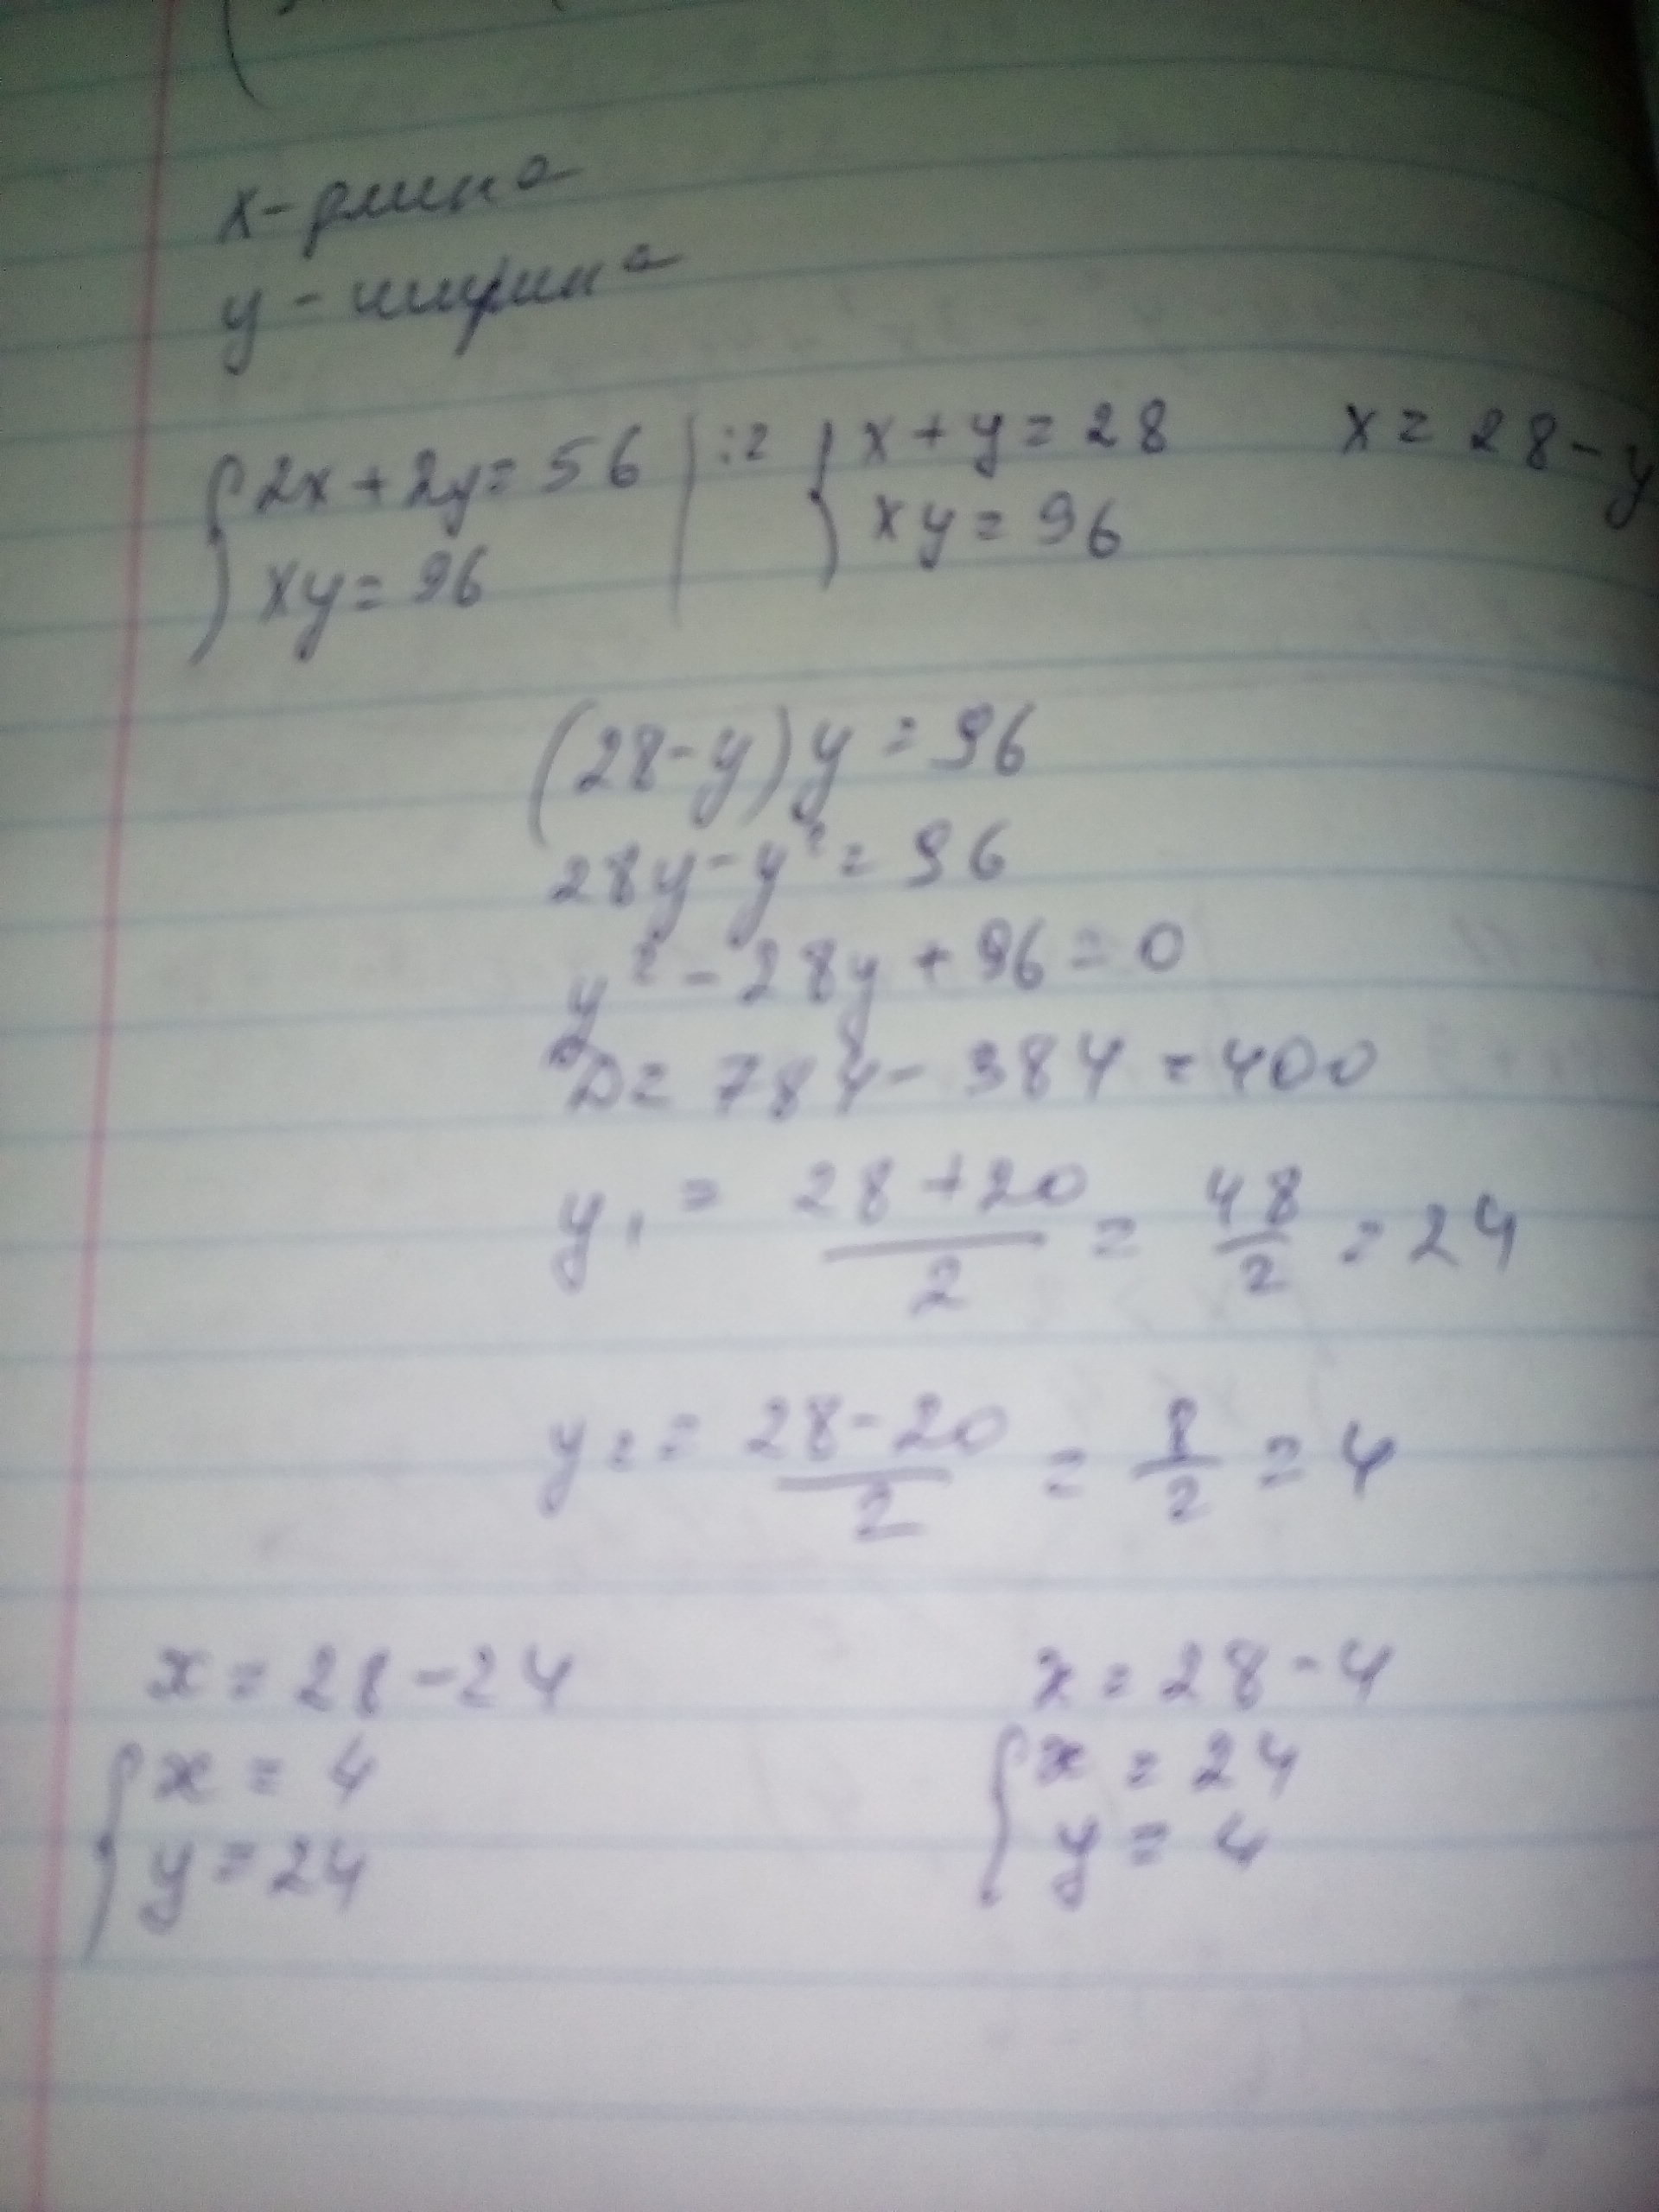 x - длина
y - ширина
{ 2x + 2y = 56 | :2 { x + y = 28 x = 28 - y
xy = 96 xy = 96
(28 - y) y = 96
28y - y² = 96
y² - 28y + 96 = 0
D = 784 - 384 = 400
y₁ = (28 + 20)/2 = 48/2 = 24
y₂ = (28 - 20)/2 = 8/2 = 4
x = 28 - 24 x = 28 - 4
{ x = 4 { x = 24
y = 24 y = 4